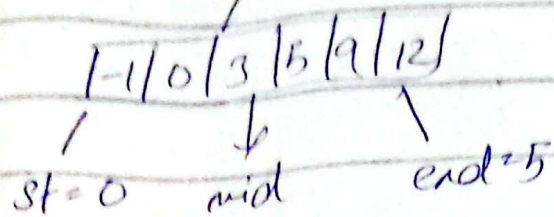 |-1|0|3|5|9|12|
st=0 mid end=5